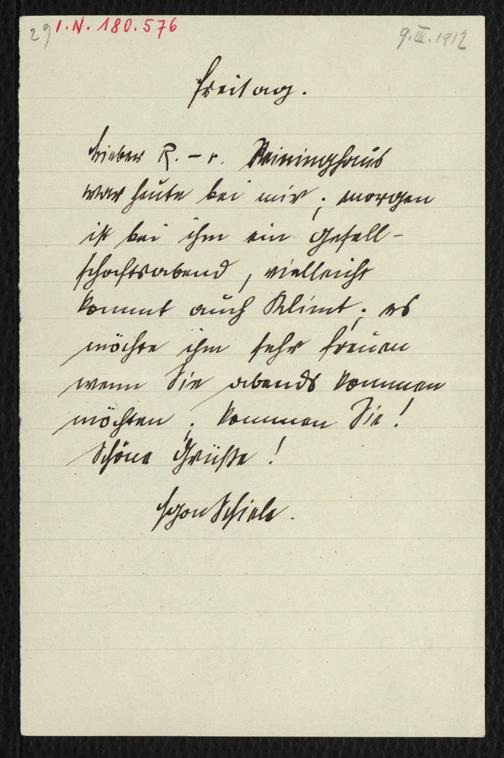 29 I.N. 180.576
9.III.1912
Freitag.
Lieber R. – r. Reininghaus
war heute bei mir; morgen
ist bei ihm ein Gesell-
schaftsabend, vielleicht
kommt auch Klimt; es
möchte ihm sehr freuen
wenn Sie abends kommen
möchten; kommen Sie!
Schöne Grüße!
Egon Schiele.